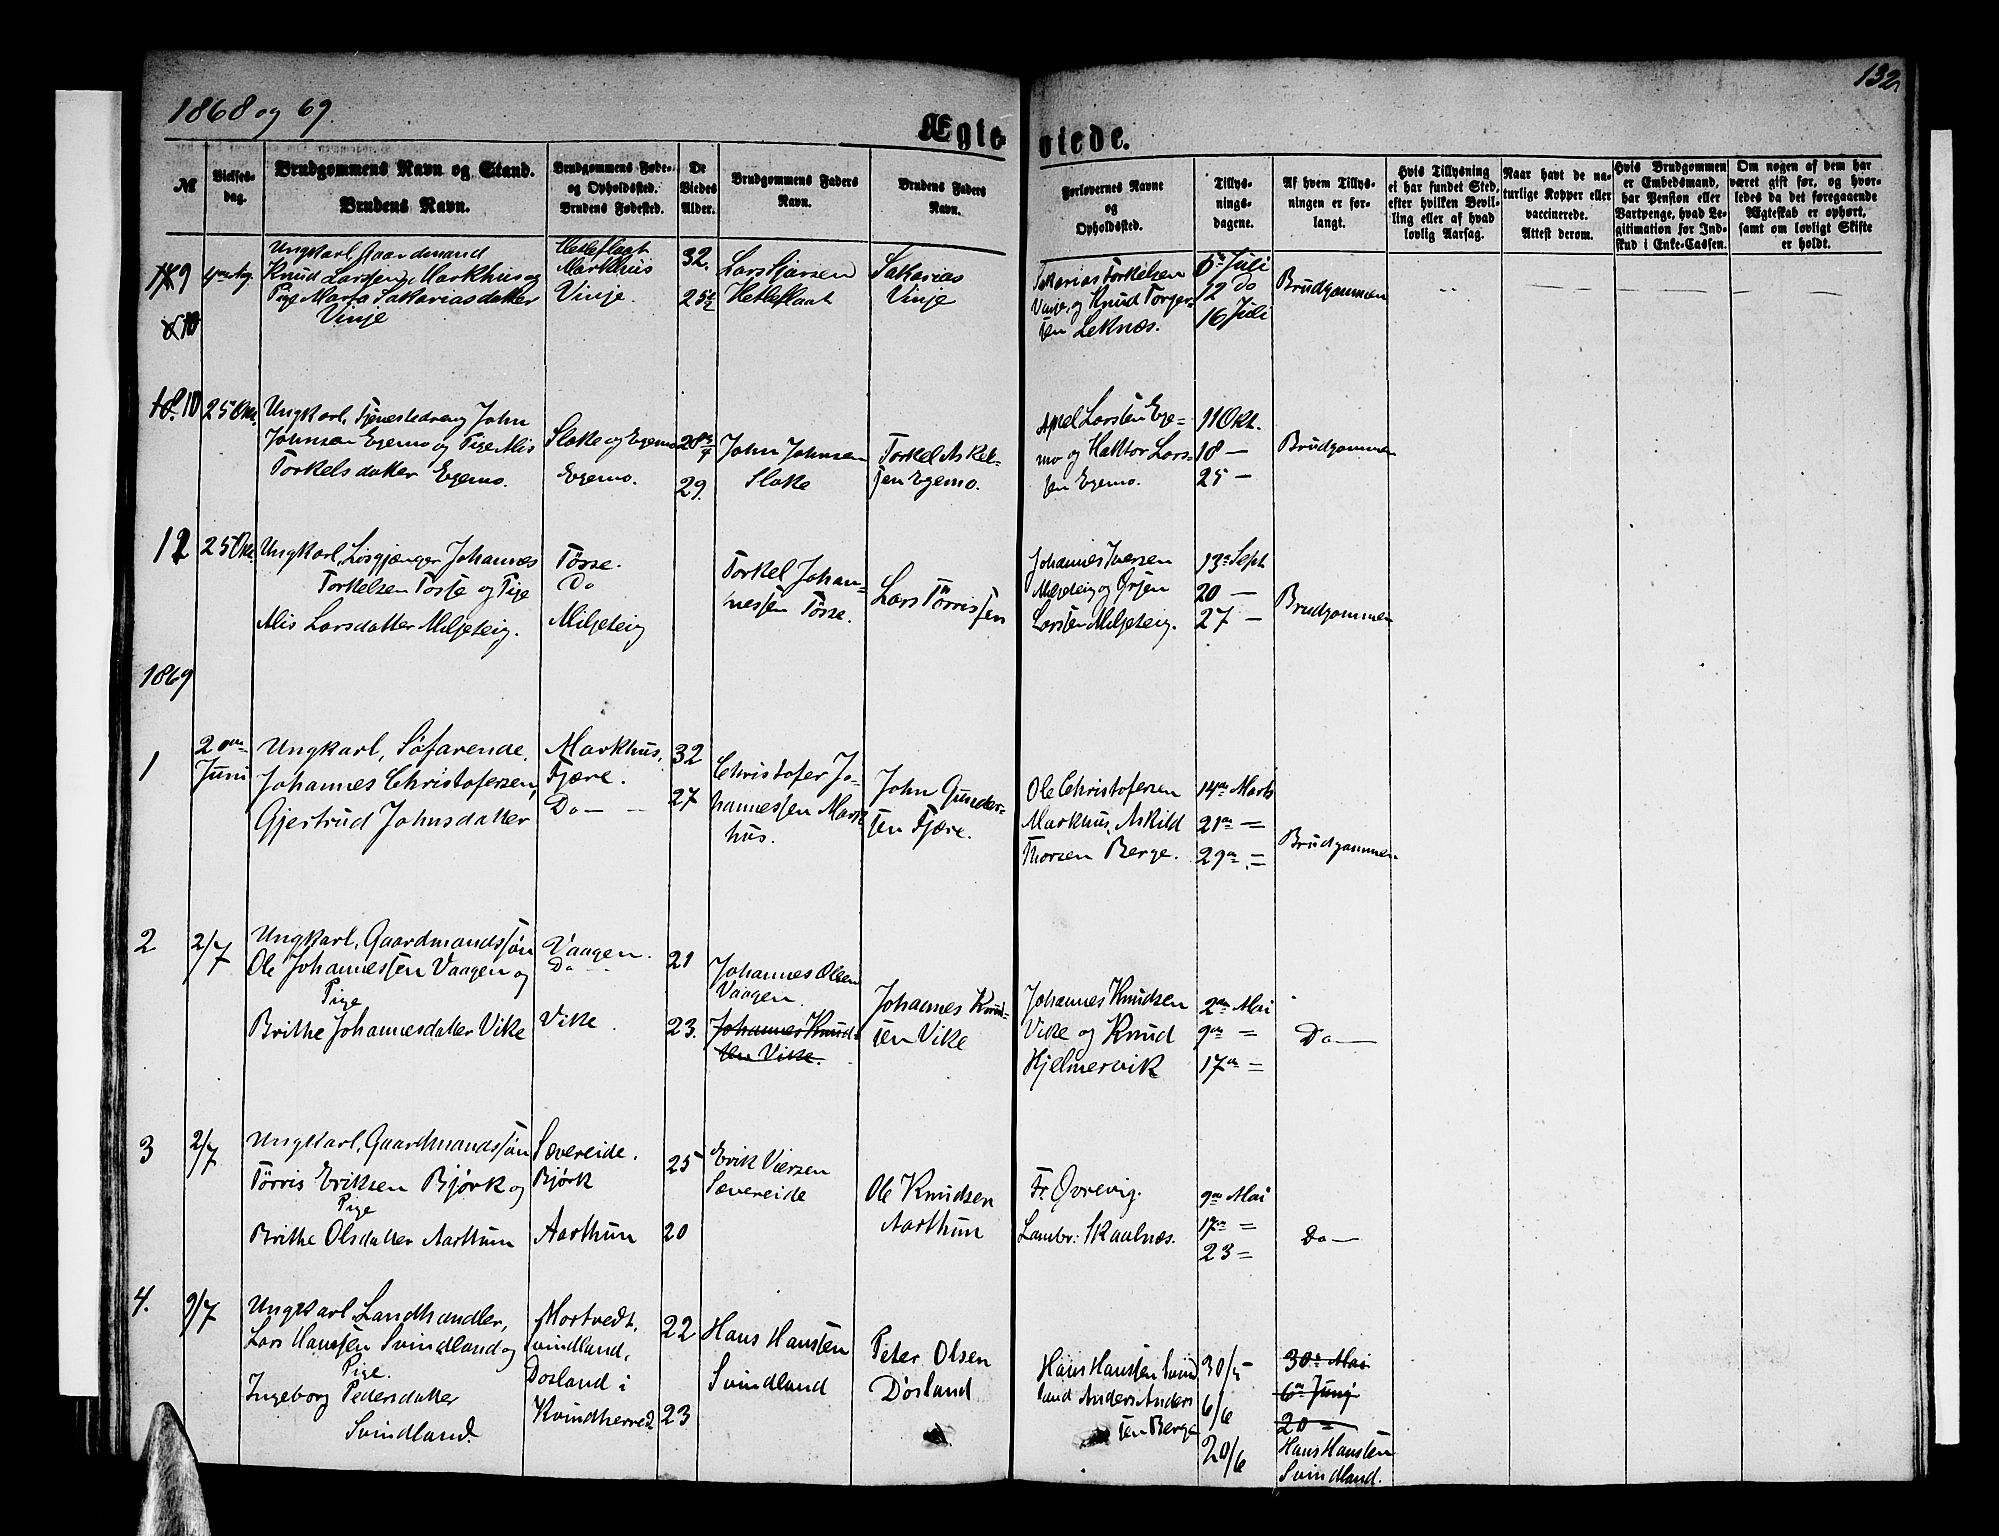 1868 og 69.
132.
Ægteviede.
№
Vielses-
dag.
Brudgommens Navn og Stand.
Brudens Navn.
Brudgommens Føde-
og Opholdssted.
Brudens Fødested.
De
Viedes
Alder.
Brudgommens Faders
Navn.
Brudens Faders
Navn.
Forlovernes Navne
og
Opholdssted.
Tillys-
nings-
dagene.
Af hvem Tillys-
ningen er for-
langt.
Hvis Tillysning
ei har fundet Sted,
efter hvilken Bevil-
ling eller af hvad
lovlig Aarsag.
Naar havt de na-
turlige Kopper eller
vaccinerede.
Attest derom.
Hvis Brudgommen
er Embedsmand,
har Pension eller
Vartpenge, hvad Le-
gitimation for Ind-
skud i Enke-Cassen.
Om nogen af dem har
været gift før, og hvor-
ledes da det foregaaende
Ægteskab er ophørt,
samt om lovligt Skifte
er holdt.
9
Ungkarl Gaardmand
Knud Larsen Markhus og
Pige Marta Sakariasdatter
Vinje
Hetleflaat
Markhus
Vinje.
32.
25½
Lars
Hetleflaat
Sakarias
Vinje
Sakarias Torkelsen
Vinje, og Knud Torger-
sen Leknæs.
5te Juli
12 Do
16 Juli
Brudgommen
10
25 Okt.
Ungkarl, Tjenestedreng John
Johnsen Egemo og Pige Alis
Torkelsdatter Egemo.
Flake og Egemo
Egemo.
28¾
29.
John Johnsen
Flake
Torkel Askel-
sen Egemo.
Axel Larsen Ege-
mo og Haktor Lars-
sen Egemo.
11 Okt.
18 —
25 —
Brudgommen
11
25 Okt.
Ungkarl, Løsgjænger Johannes
Torkelsen Tøsse og Pige
Alis Larsdatter Miljeteig.
Tøsse.
Do
Miljeteig
Torkel Johan-
nessen Tøsse.
Lars Tørrissen
Johannes Iversen
Miljeteig og Ørjen
Larsen Miljeteig.
13de Sept
20 —
27 —
Brudgommen
1869
1
20de
Juni
Ungkarl, Søfarende.
Johannes Christofersen,
Gjertrud Johnsdatter
Markhus,
Fjære.
Do —
32
27
Christofer Jo-
hannessen Mark-
hus.
John Gunder-
sen Fjære.
Ole Christofersen
Markhus, Askild
Thorsen Berge.
14de Marts
21de =
29de =
Brudgommen
2
2/7
Ungkarl, Gaardmandssøn
Ole Johannessen Vaagen og
Pige
Brithe Johannesdatter Vike
Vaagen.
Do —
Vike
21
23.
Johannes Olsen
Vaagen.
Johannes Knud-
sen Vike.
Johannes Knud-
sen Vike
Johannes Knudsen
Vike og Knud
Hjelmervik
2den Mai
9de =
17de =
Do —
3
2/7
Ungkarl, Gaardmandssøn
Tørris Eriksen Bjørk og
Pige
Brithe Olsdatter Aarthun
Sævereide.
Bjørk
Aarthun
25
20
Erik Viersen
Sævereide
Ole Knudsen
Aarthun
Fr. Øvrevig.
Lambr: Skaalnæs.
9de Mai
17de =
23 =
Do —
4.
9/7
Ungkarl Landhandler,
Lars Hanssen Svindland og
Pige.
Ingeborg Pedersdatter
Svindland.
Mortvedt,
Svindland,
Døsland i
Kvindherred
22
23
Hans Hanssen
Svindland
Peter Olsen
Døsland
Hans Hanssen Svind
land Anders Anders
sen Berge
30/5
6/6
20/6
30te Mai
6te Juni
20de =
Hans Hanssen
Svindland.